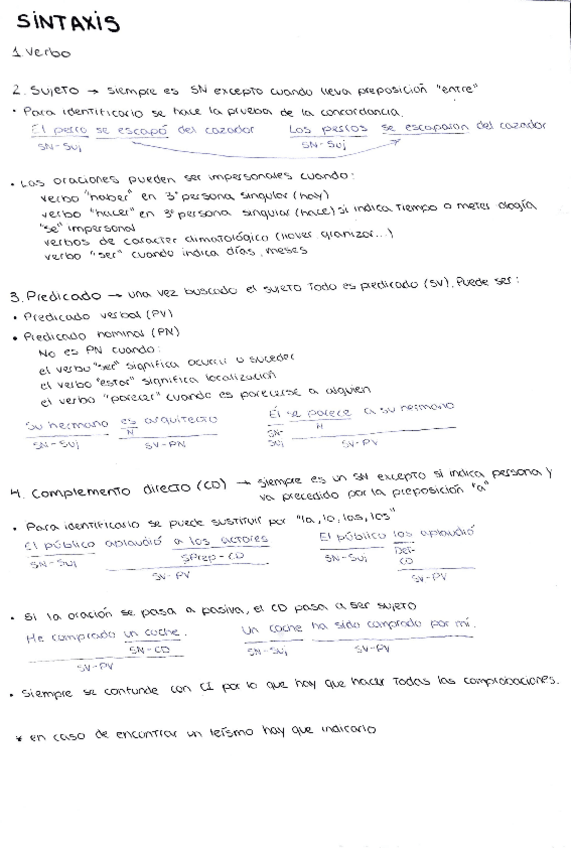 SINTAXIS
1. Verbo
2. Sujeto → siempre es SN excepto cuando lleva preposición "entre"
• Para identificarlo se hace la prueba de la concordancia.
El perro se escapó del cazador   Los perros se escaparon del cazador
SN-Suj   SN-Suj
• Las oraciones pueden ser impersonales cuando:
verbo "haber" en 3ª persona singular (hay)
verbo "hacer" en 3ª persona singular (hace) si indica tiempo o meteorología
"se" impersonal
verbos de caracter climatológico (llover, granizar...)
verbo "ser" cuando indica días, meses
3. Predicado → una vez buscado el sujeto todo es predicado (SV). Puede ser:
• Predicado verbal (PV)
• Predicado nominal (PN)
No es PN cuando:
el verbo "ser" significa ocurrir o suceder
el verbo "estar" significa localización
el verbo "parecer" cuando es parecerse a alguien
Su hermano es arquitecto   Él se parece a su hermano
N   N
SN-Suj   SV-PN   SN-Suj   SV-PV
4. Complemento directo (CD) → siempre es un SN excepto si indica persona y
va precedido por la preposición "a"
• Para identificarlo se puede sustituir por "la, lo, las, los"
El público aplaudió a los actores   El público los aplaudió
SN-Suj   SPrep-CD   SN-Suj   Det-CD
SV-PV   SV-PV
• Si la oración se pasa a pasiva, el CD pasa a ser sujeto
He comprado un coche.   Un coche ha sido comprado por mí.
SN-CD   SN-Suj   SV-PV
SV-PV
• Siempre se confunde con CI por lo que hay que hacer todas las comprobaciones.
* en caso de encontrar un leísmo hay que indicarlo